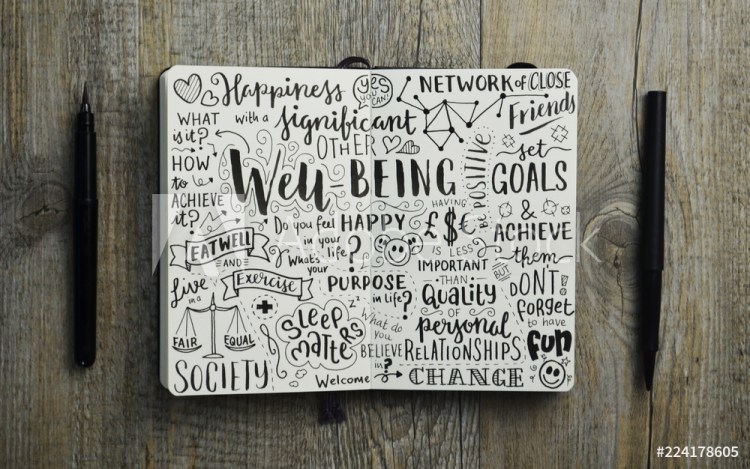 Happiness
with a
significant
OTHER
YES
YOU
CAN!
WHAT
is it?
HOW
to
ACHIEVE
it?
WELL-BEING
EAT WELL
AND
Exercise
Do you feel
HAPPY
in your
life?
What's
your
PURPOSE
in life?
Live
in a
FAIR EQUAL
SOCIETY
zz
SLEEP
matters
What do
you
BELIEVE
in?
Welcome
CHANGE
NETWORK of CLOSE
Friends
BE POSITIVE
set
GOALS
&
ACHIEVE
them
HAVING
£$€
IS LESS
IMPORTANT
THAN
Quality
of
personal
RELATIONSHIPS
BUT
DON'T
forget
to have
fun
#224178605